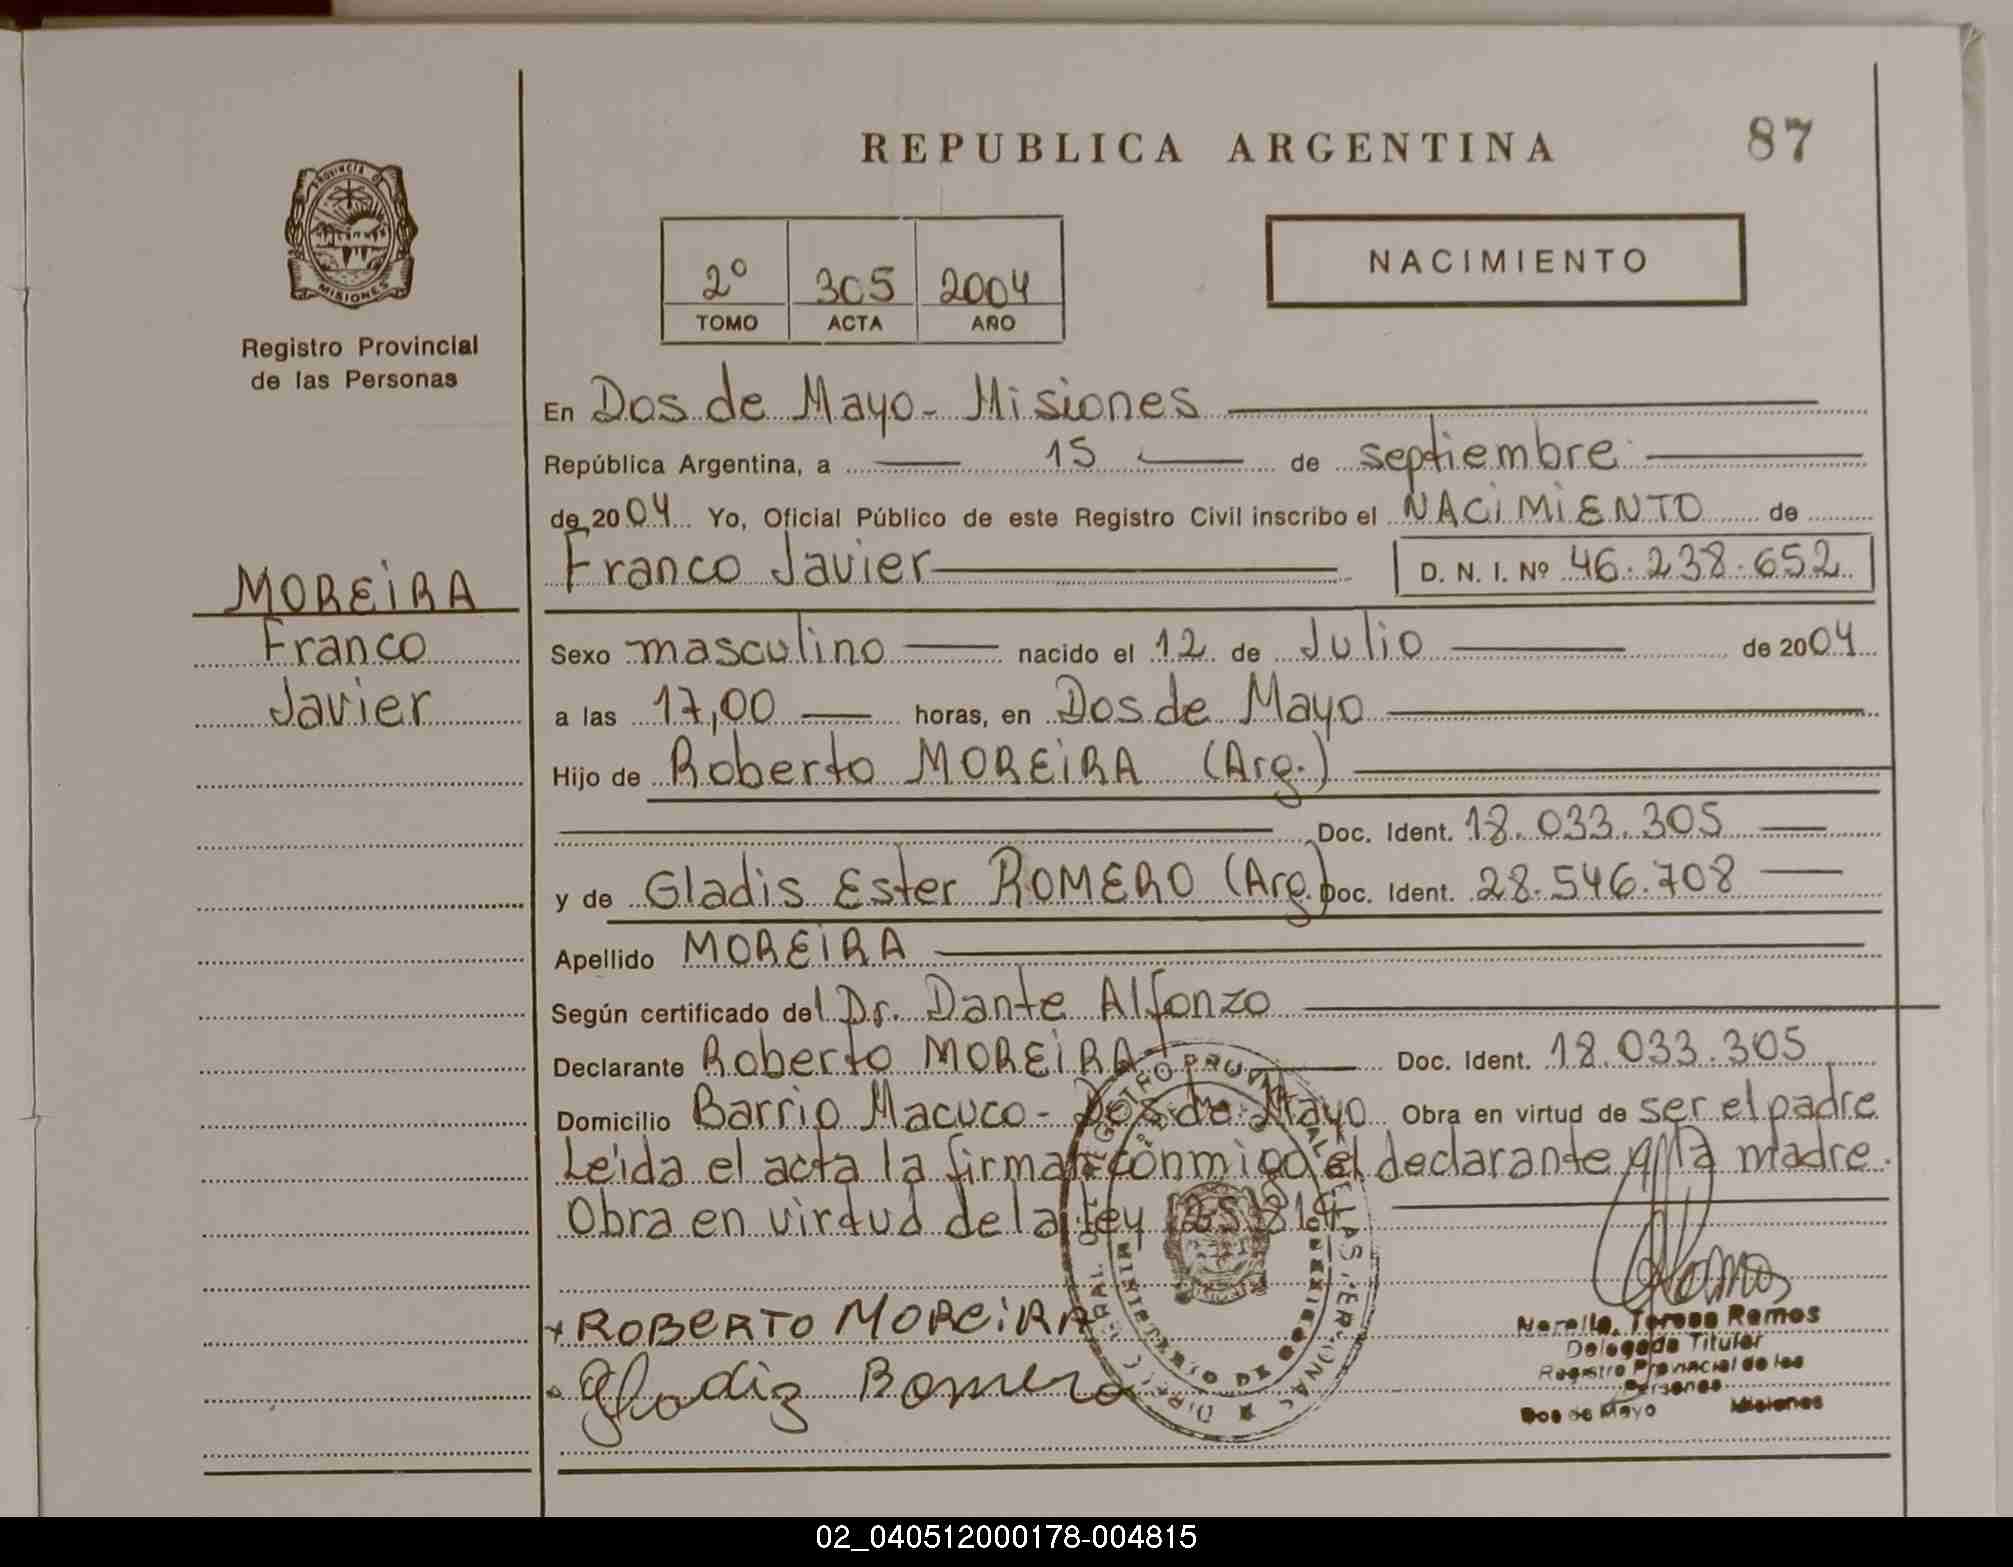 REPUBLICA ARGENTINA
87
PROVINCIA DE
MISIONES
Registro Provincial
de las Personas
2º 305 2004
TOMO ACTA AÑO
NACIMIENTO
En Dos de Mayo - Misiones
República Argentina, a 15 de septiembre
de 2004 Yo, Oficial Público de este Registro Civil inscribo el NACIMIENTO de
Franco Javier D. N. I. Nº 46.238.652
MOREIRA
Franco
Javier
Sexo masculino nacido el 12 de Julio de 2004
a las 17,00 horas, en Dos de Mayo
Hijo de Roberto MOREIRA (Arg.)
Doc. Ident. 18.033.305
y de Gladis Ester ROMERO (Arg.) Doc. Ident. 28.546.708
Apellido MOREIRA
Según certificado del Dr. Dante Alfonzo
Declarante Roberto MOREIRA Doc. Ident. 18.033.305
Domicilio Barrio Macuco - Dos de Mayo Obra en virtud de ser el padre
Leida el acta la firman conmigo el declarante y la madre.
Obra en virtud de la ley
ROBERTO MOREIRA
Gladiz Romero
Teresa Ramos
Delegada Titular
Registro Provincial de las
Personas
Dos de Mayo Misiones
02_040512000178-004815